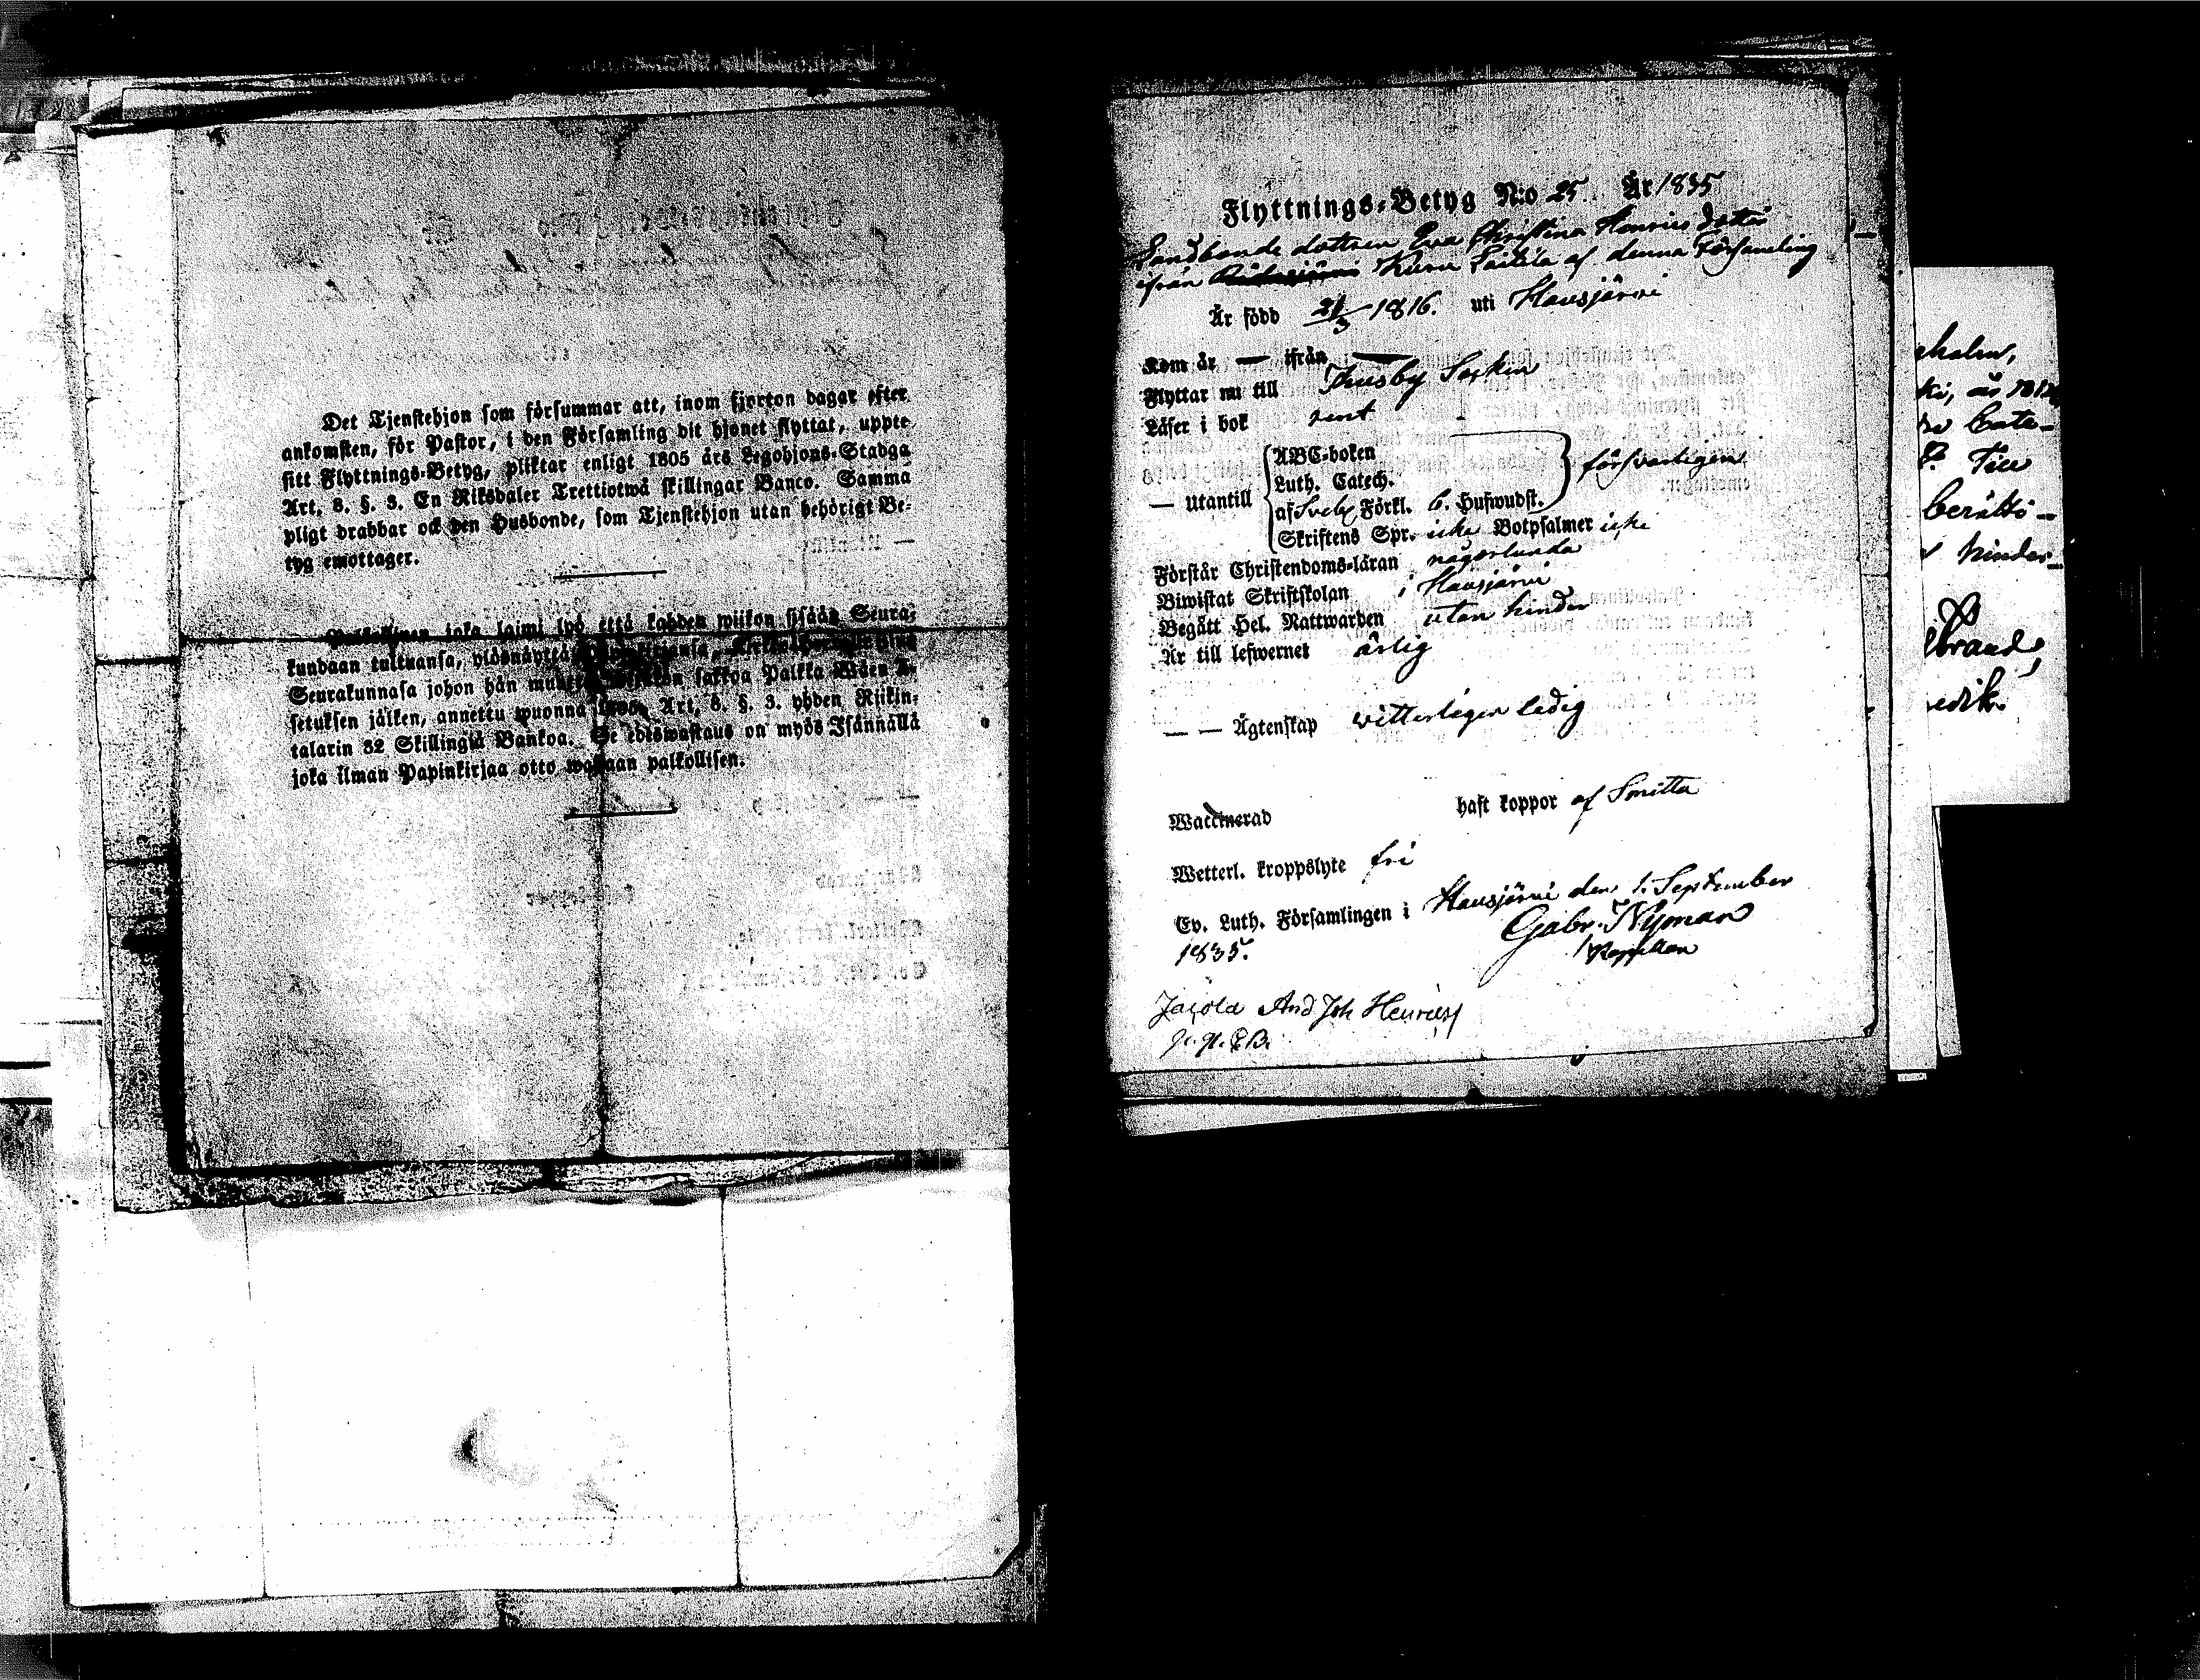 Det Tjenstehjon som försummar att, inom fjorton dagar efter
ankomsten, för Pastor, i den Församling dit hjonet flyttat, uppte
sitt Flyttnings-Betyg, pliktar enligt 1805 års Legohjons-Stadga
Art. 8. §. 3. En Riksdaler Trettiotwå skillingar Banco. Samma
pligt drabbar ock den Husbonde, som Tjenstehjon utan behörigt Be-
tyg emottager.
joka laimi lyö että kahden wiikon sisään Seura-
kundaan tultuansa, ylösnäyttää
Seurakunnasa johon hän sakkoa Palkka Wäen A-
setuksen jälken, annettu wuonna Art. 8. §. 3. yhden Riikin-
talarin 32 Skillingiä Bankoa. Se edeswastaus on myös Isännällä
joka ilman Papinkirjaa otto palkollisen.
Flyttnings-Betyg N:o 25. År 1835
Landbonde dottren Eva Christina Henrics dotter
ifrån Kuru Laitila af denna Församling
Är född 21/3 1816. uti Hausjärvi
Kom år — ifrån —
Flyttar nu till Thusby Socken
Läser i bok rent
— Utantill
ABC-boken
Luth. Catech.
af Sveb. Förkl. 6. Hufwudst.
försvarligen
Skriftens Spr. icke Botpsalmer icke
Förstår Christendoms-läran någorlunda
Biwistat Skriftskolan i Hausjärvi
Begått Hel. Nattwarden utan hinder
Är till lefwernet ärlig
— — Ägtenskap vitterligen ledig
Waccinerad haft koppor af Smitta
Wetterl. kroppslyte fri
Ev. Luth. Församlingen i Hausjärvi den 1. September
1835.
Gabr. Nyman
Kapellan
And Joh Henricss
berätti-
hinder